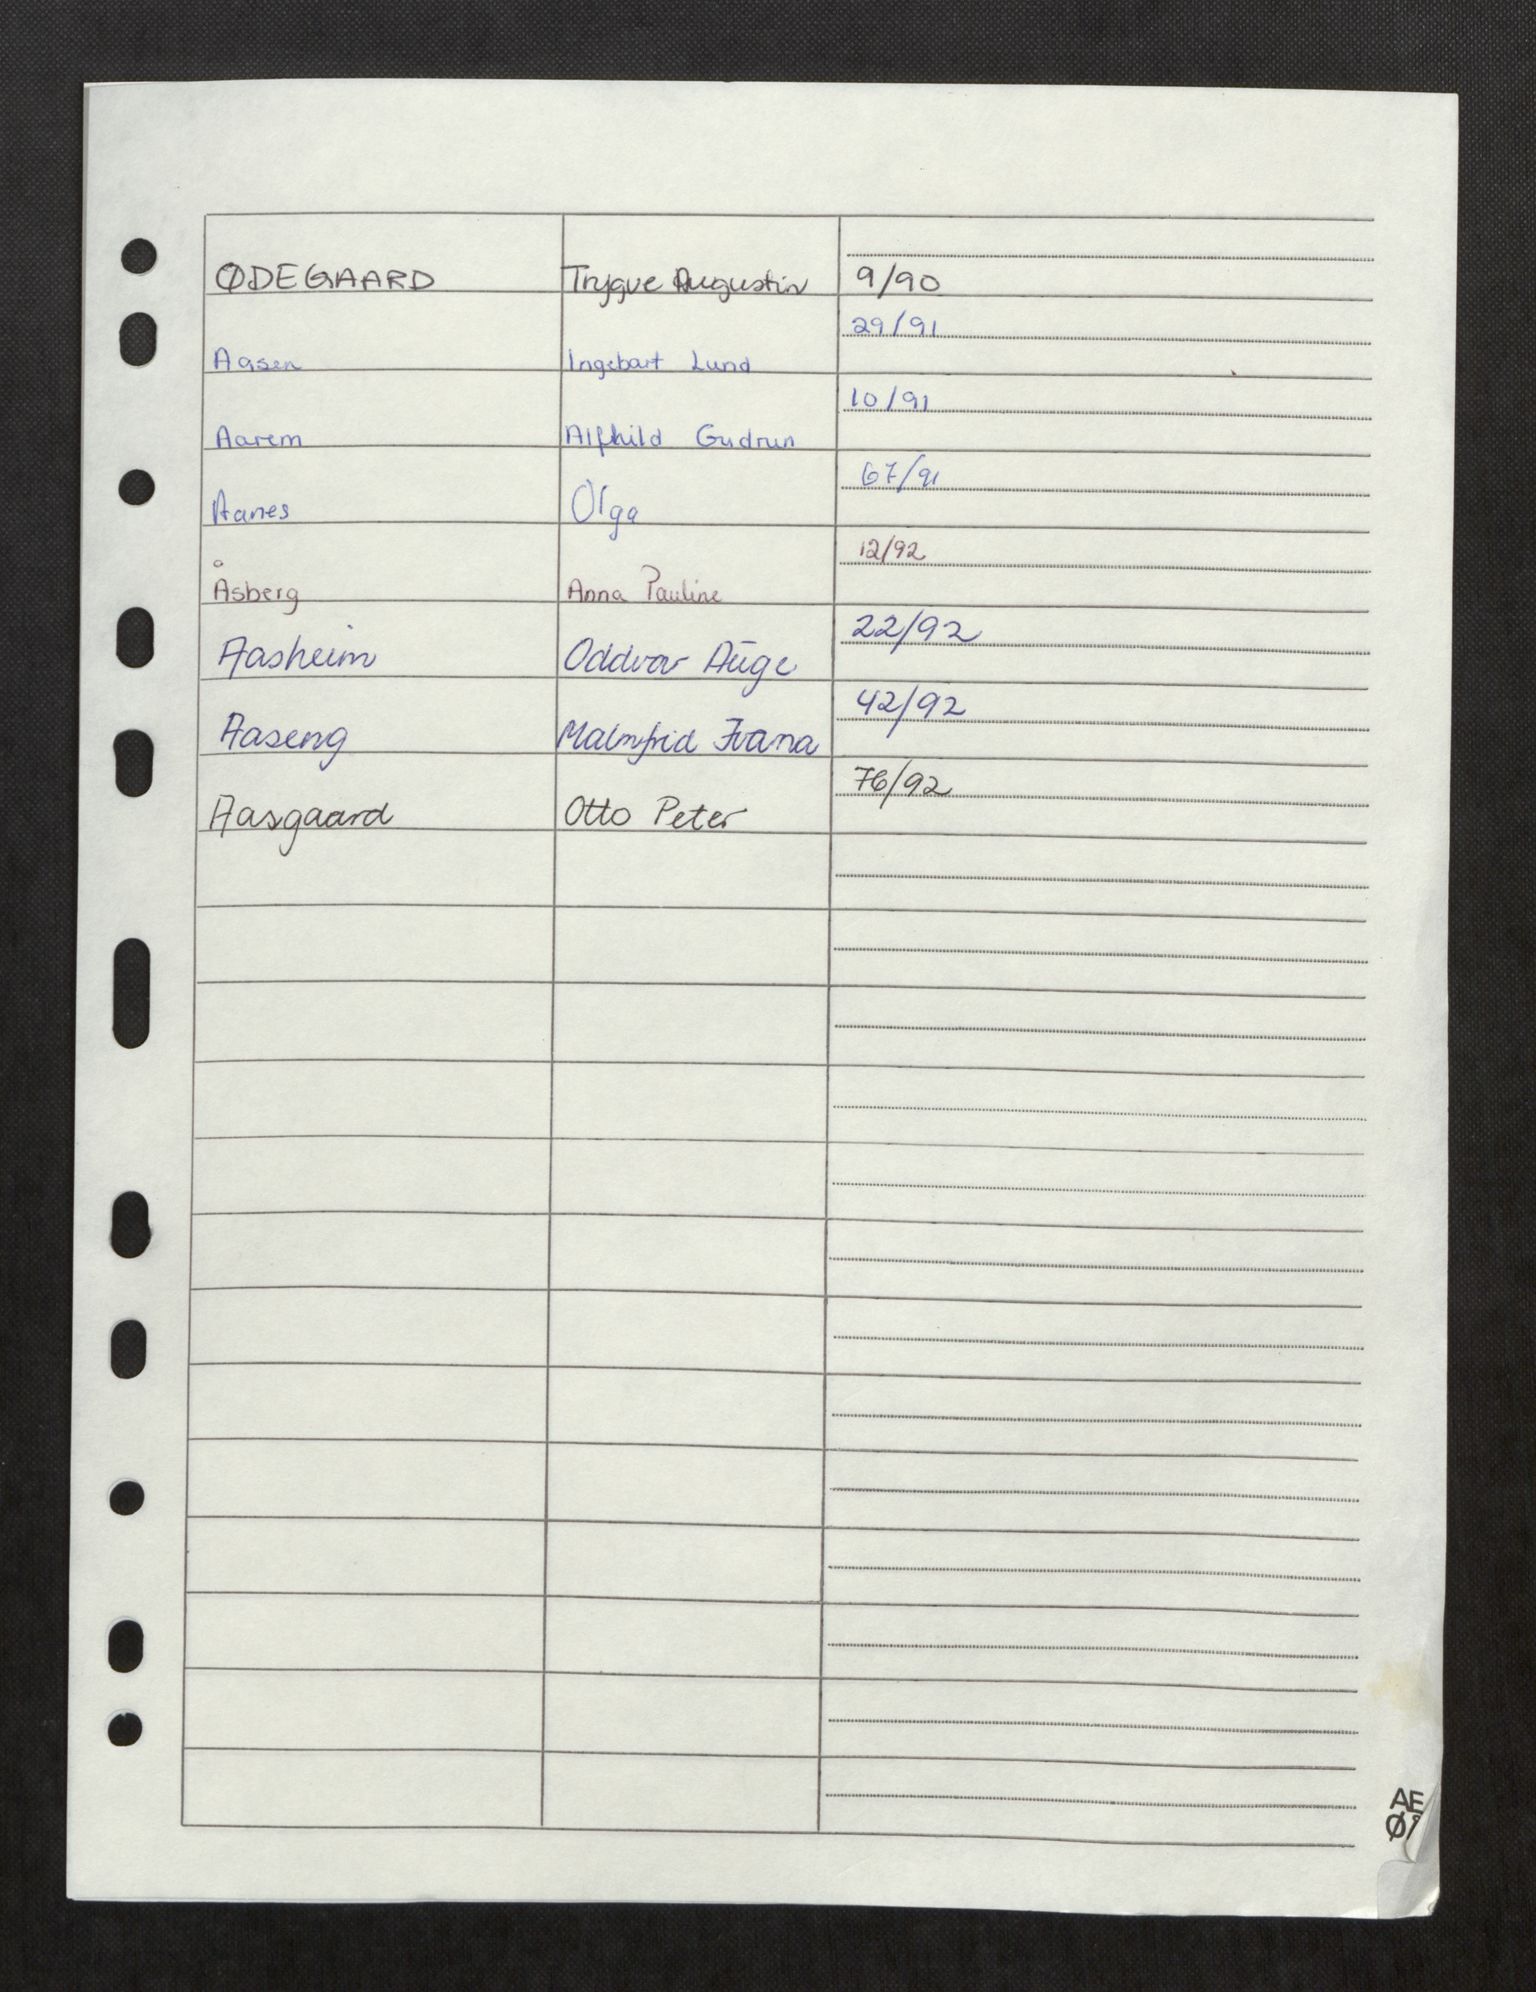 ØDEGAARD Trygve Augustin 9/90
Aasen Ingebart Lund 29/91
Aarem Alfhild Gudrun 10/91
Aanes Olga 67/91
Åsberg Anna Pauline 12/92
Aasheim Oddvar Åuge 22/92
Aaseng Malmfrid Ivana 42/92
Aasgaard Otto Peter 76/92